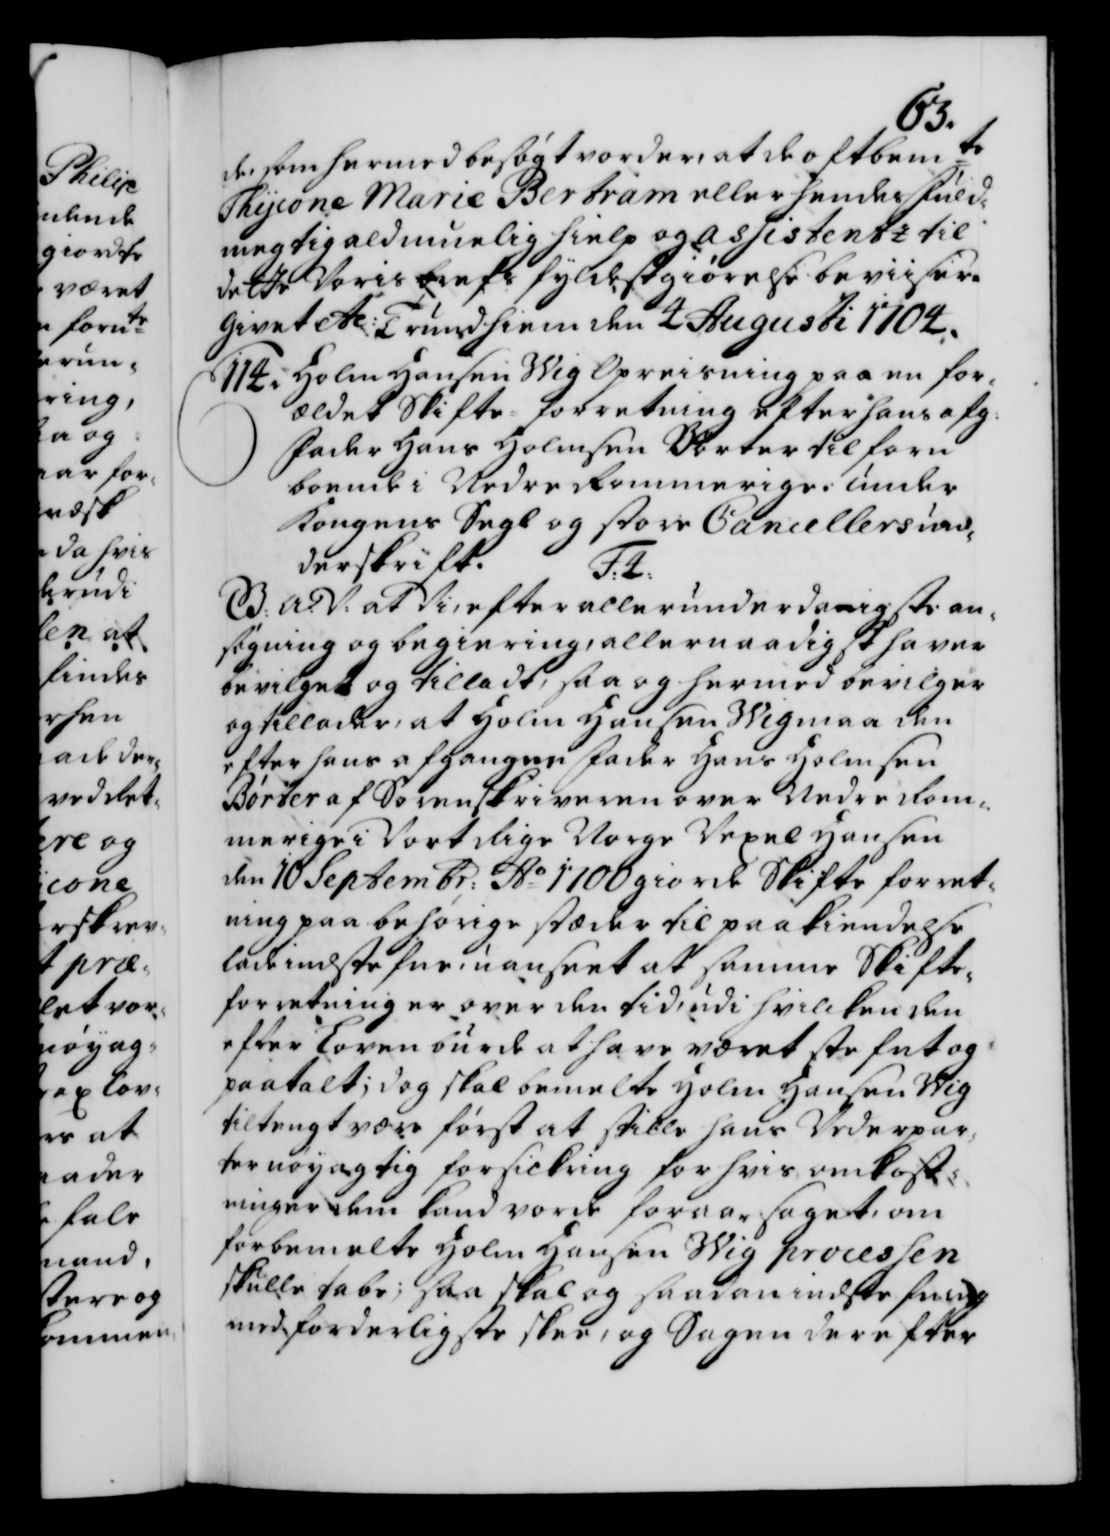 63.
de, som hermed besøgt vorder, at de oftbem.te
Thijcone Marie Bertram eller hendes Fuld-
megtig ald muelig hielp og assistentz til
dette Voris brefs fyldestgiørelse beviiser.
Givet etc: Trundhiem den 4 Augusti 1704.
114. Holm Hansen Wig Opreisning paa en for-
ældet Skifte-forretning efter hans afg:
Fader Hans Holmsen Børter tilforn
boende i Nedre Rommerige. Under
Kongens Segl og store Cancellers un-
derskrift. F: 4:
G: A: V: at Vi, efter allerunderdanigste an-
søgning og begiering, allernaadigst haver
bevilget og tilladt, saa og hermed bevilger
og tillader, at Holm Hansen Wig maa den
efter hans afgangne Fader Hans Holmsen
Børter af Sorenskriveren over Nedre Rom-
merige i Vort Rige Norge Vexel Hansen
den 10 Septembr: Ao 1700 giorde Skifte forret-
ning paa behørige stæder til paakiendelse
lade indstefne, uanseet at samme Skifte-
forretning er over den tid, udi hvilcken den
efter Loven burde at have været stefnt og
paatalt; dog skal bemelte Holm Hansen Wig
tiltengt være først at stille hans Vederpar-
ter nøyagtig forsickring for hvis omkost-
ninger dem kand vorde foraarsaget, om
forbemelte Holm Hansen Wig processen
skulle tabe; saa skal og saadan indstefning
med forderligste skee, og Sagen derefter
Philip
giordte
været
forn.te
ring,
og
aar for-
da hvis
at
findes
vedlet-
og
cone
præ-
let vor-
nøyag-
Lov-
at
fale
mand,
og
kommen